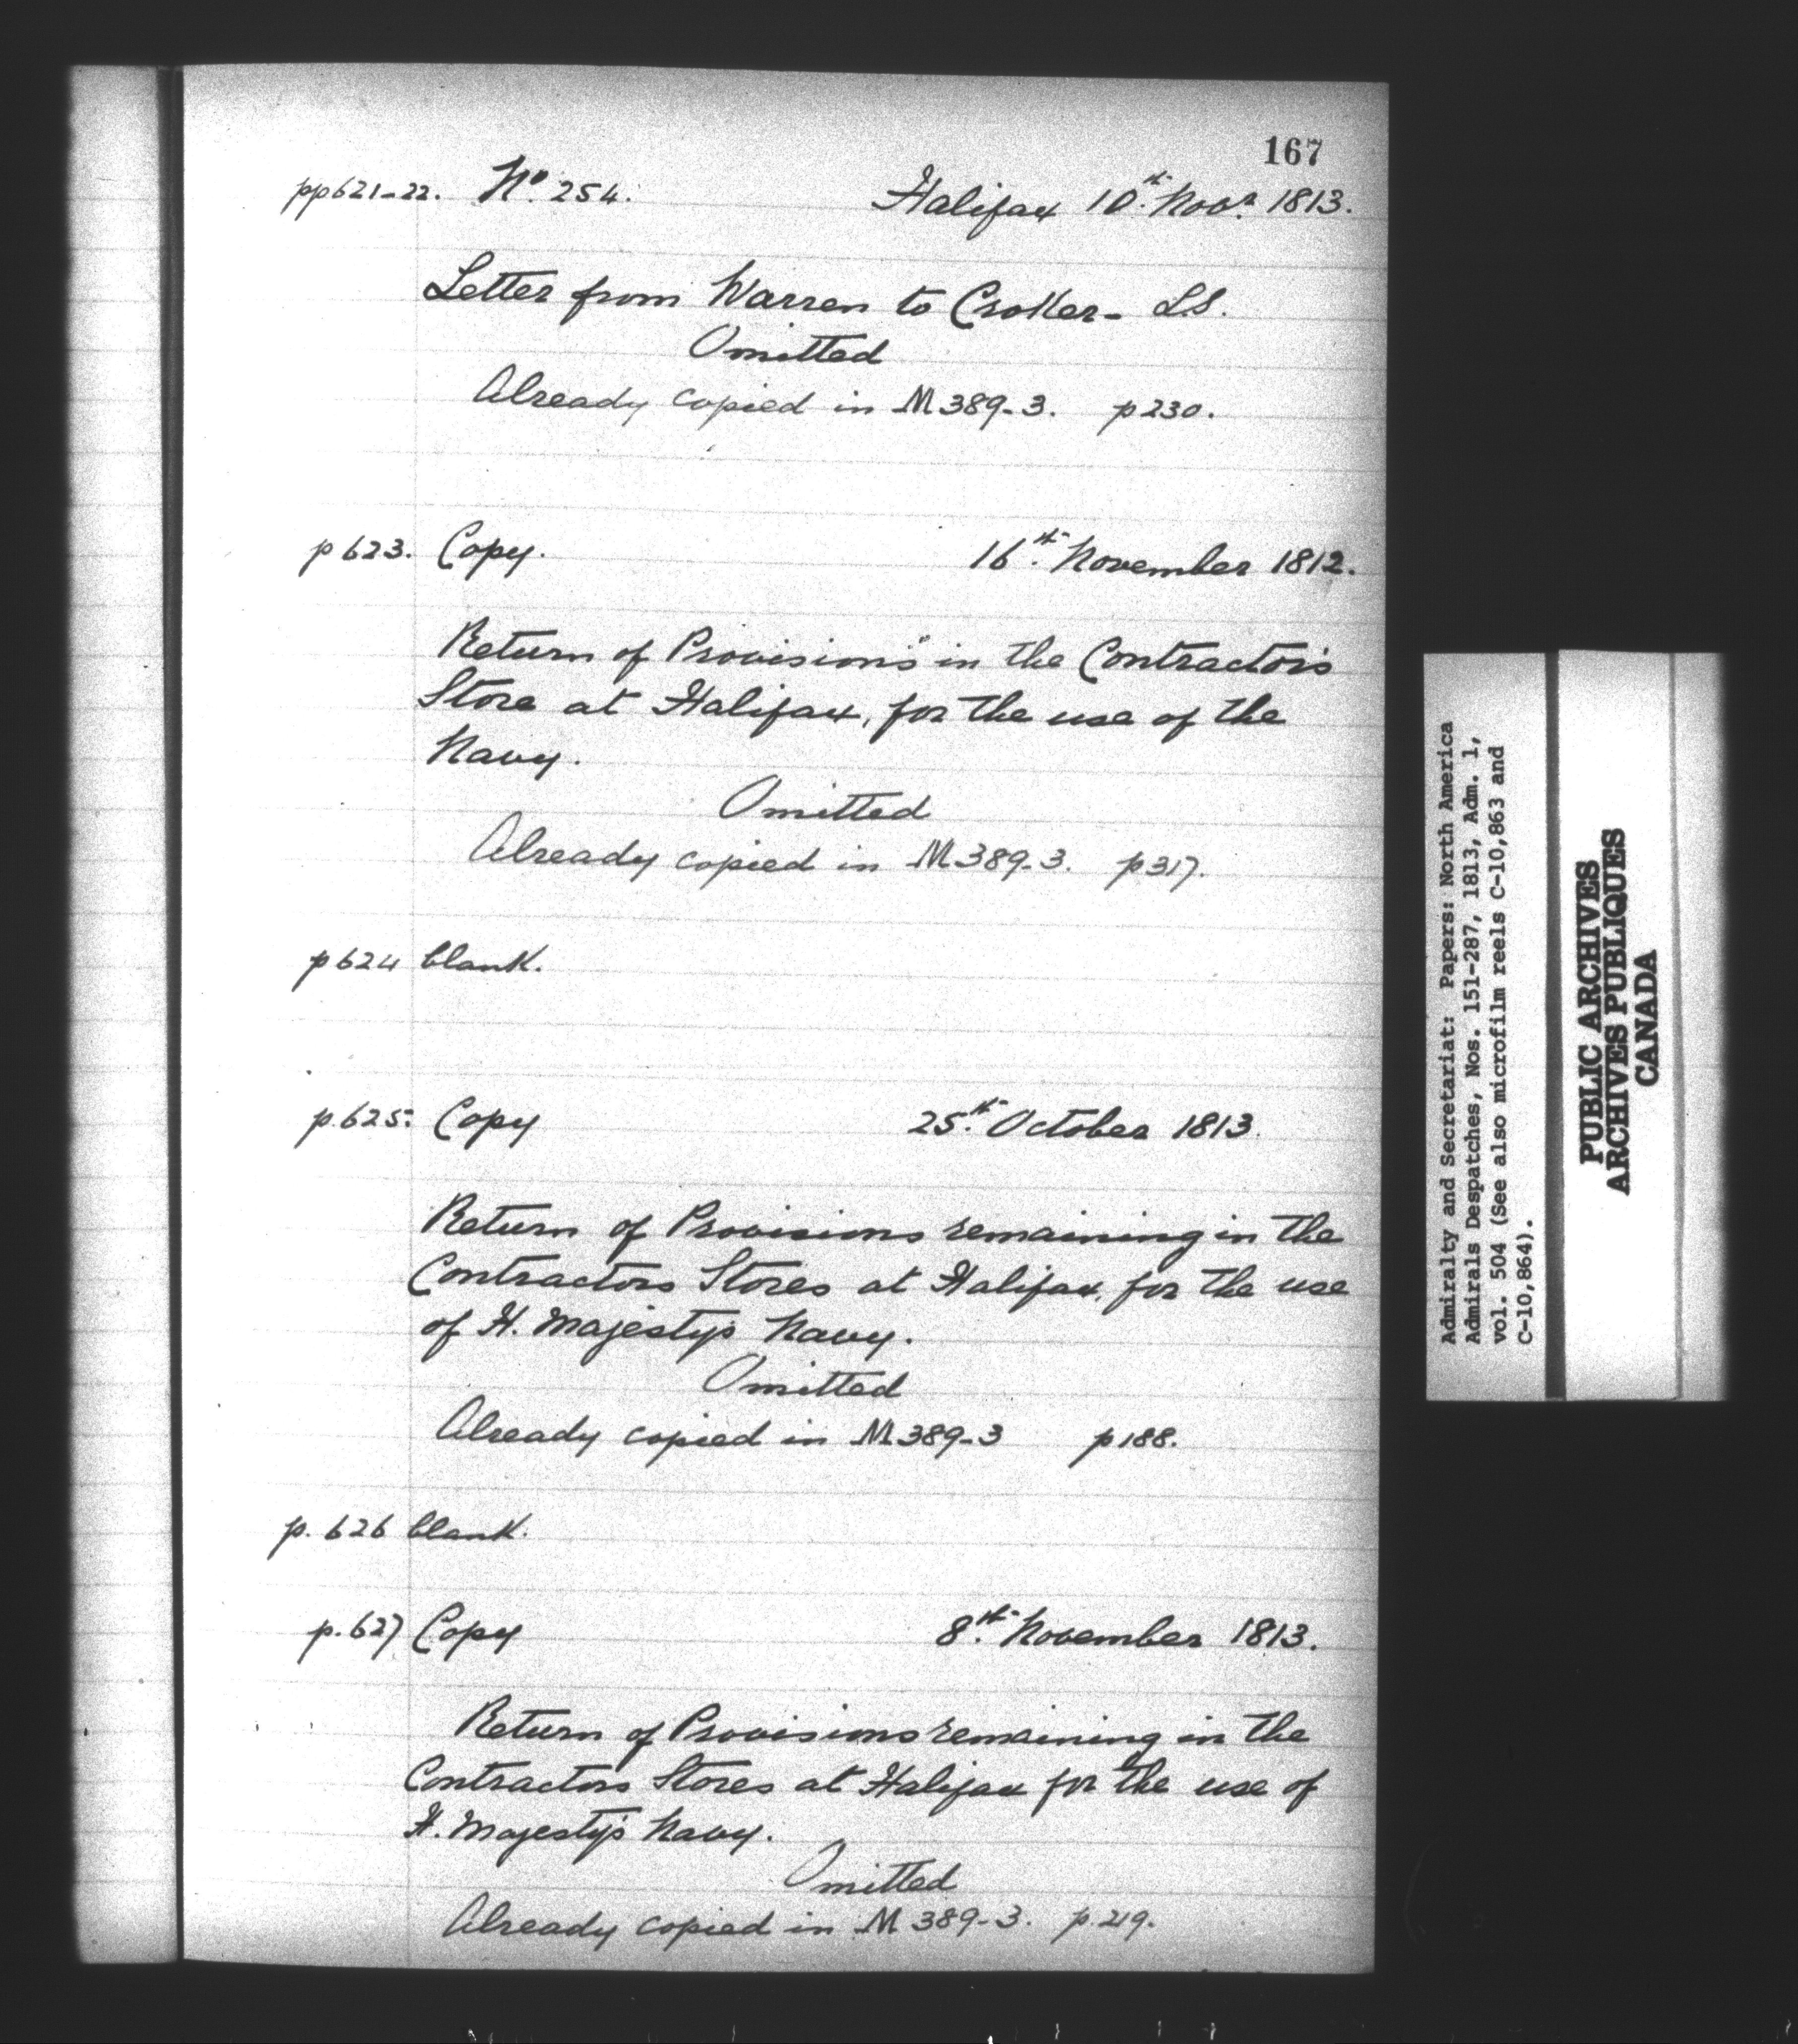 167
pp621-22. No. 254. Halifax 10th. Novr. 1813.
Letter from Warren to Croker- L.S.
Omitted
Already copied in M 389-3. p 230.
p 623. Copy. 16th. November 1812.
Return of Provisions" in the Contractor's
Store at Halifax, for the use of the
Navy.
Omitted
Already copied in M 389-3. p 317.
p 624 blank.
p. 625: Copy 25th. October 1813.
Return of Provisions remaining in the
Contractors Stores at Halifax, for the use
of H. Majesty's Navy.
Omitted
Already copied in M 389-3 p 188.
p. 626 blank.
p. 627 Copy 8th. November 1813.
Return of Provisions remaining in the
Contractors Stores at Halifax for the use of
H. Majesty's Navy.
Omitted
Already copied in M 389-3. p. 219.
Admiralty and Secretariat: Papers: North America
Admirals Despatches, Nos. 151-287, 1813, Adm. 1,
vol. 504 (See also microfilm reels C-10,863 and
C-10,864).
PUBLIC ARCHIVES
ARCHIVES PUBLIQUES
CANADA